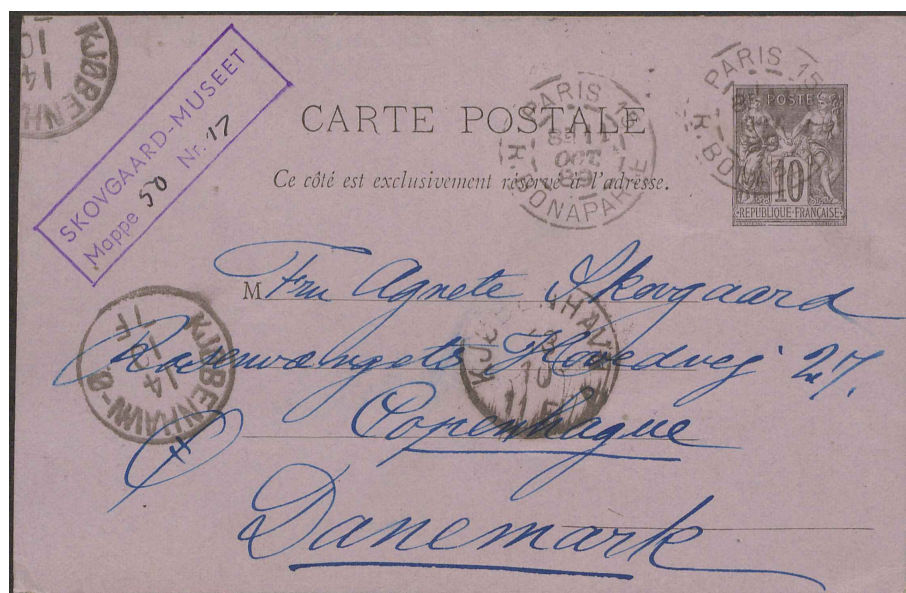 KJØBENH
14
10
SKOVGAARD-MUSEET
Mappe 50 Nr. 17
CARTE POSTALE
Ce côté est exclusivement réservé à l'adresse.
PARIS 15
OCT
89
R. BONAPARTE
PARIS 15
R. BONAPARTE
POSTE
10
REPUBLIQUE FRANÇAISE
M Fru Agnete Skovgaard
Rosenvængets Hovedvej 27.
Copenhague
Danemark
KJØBENHAVN-Ø.
14
1F
10
11 F